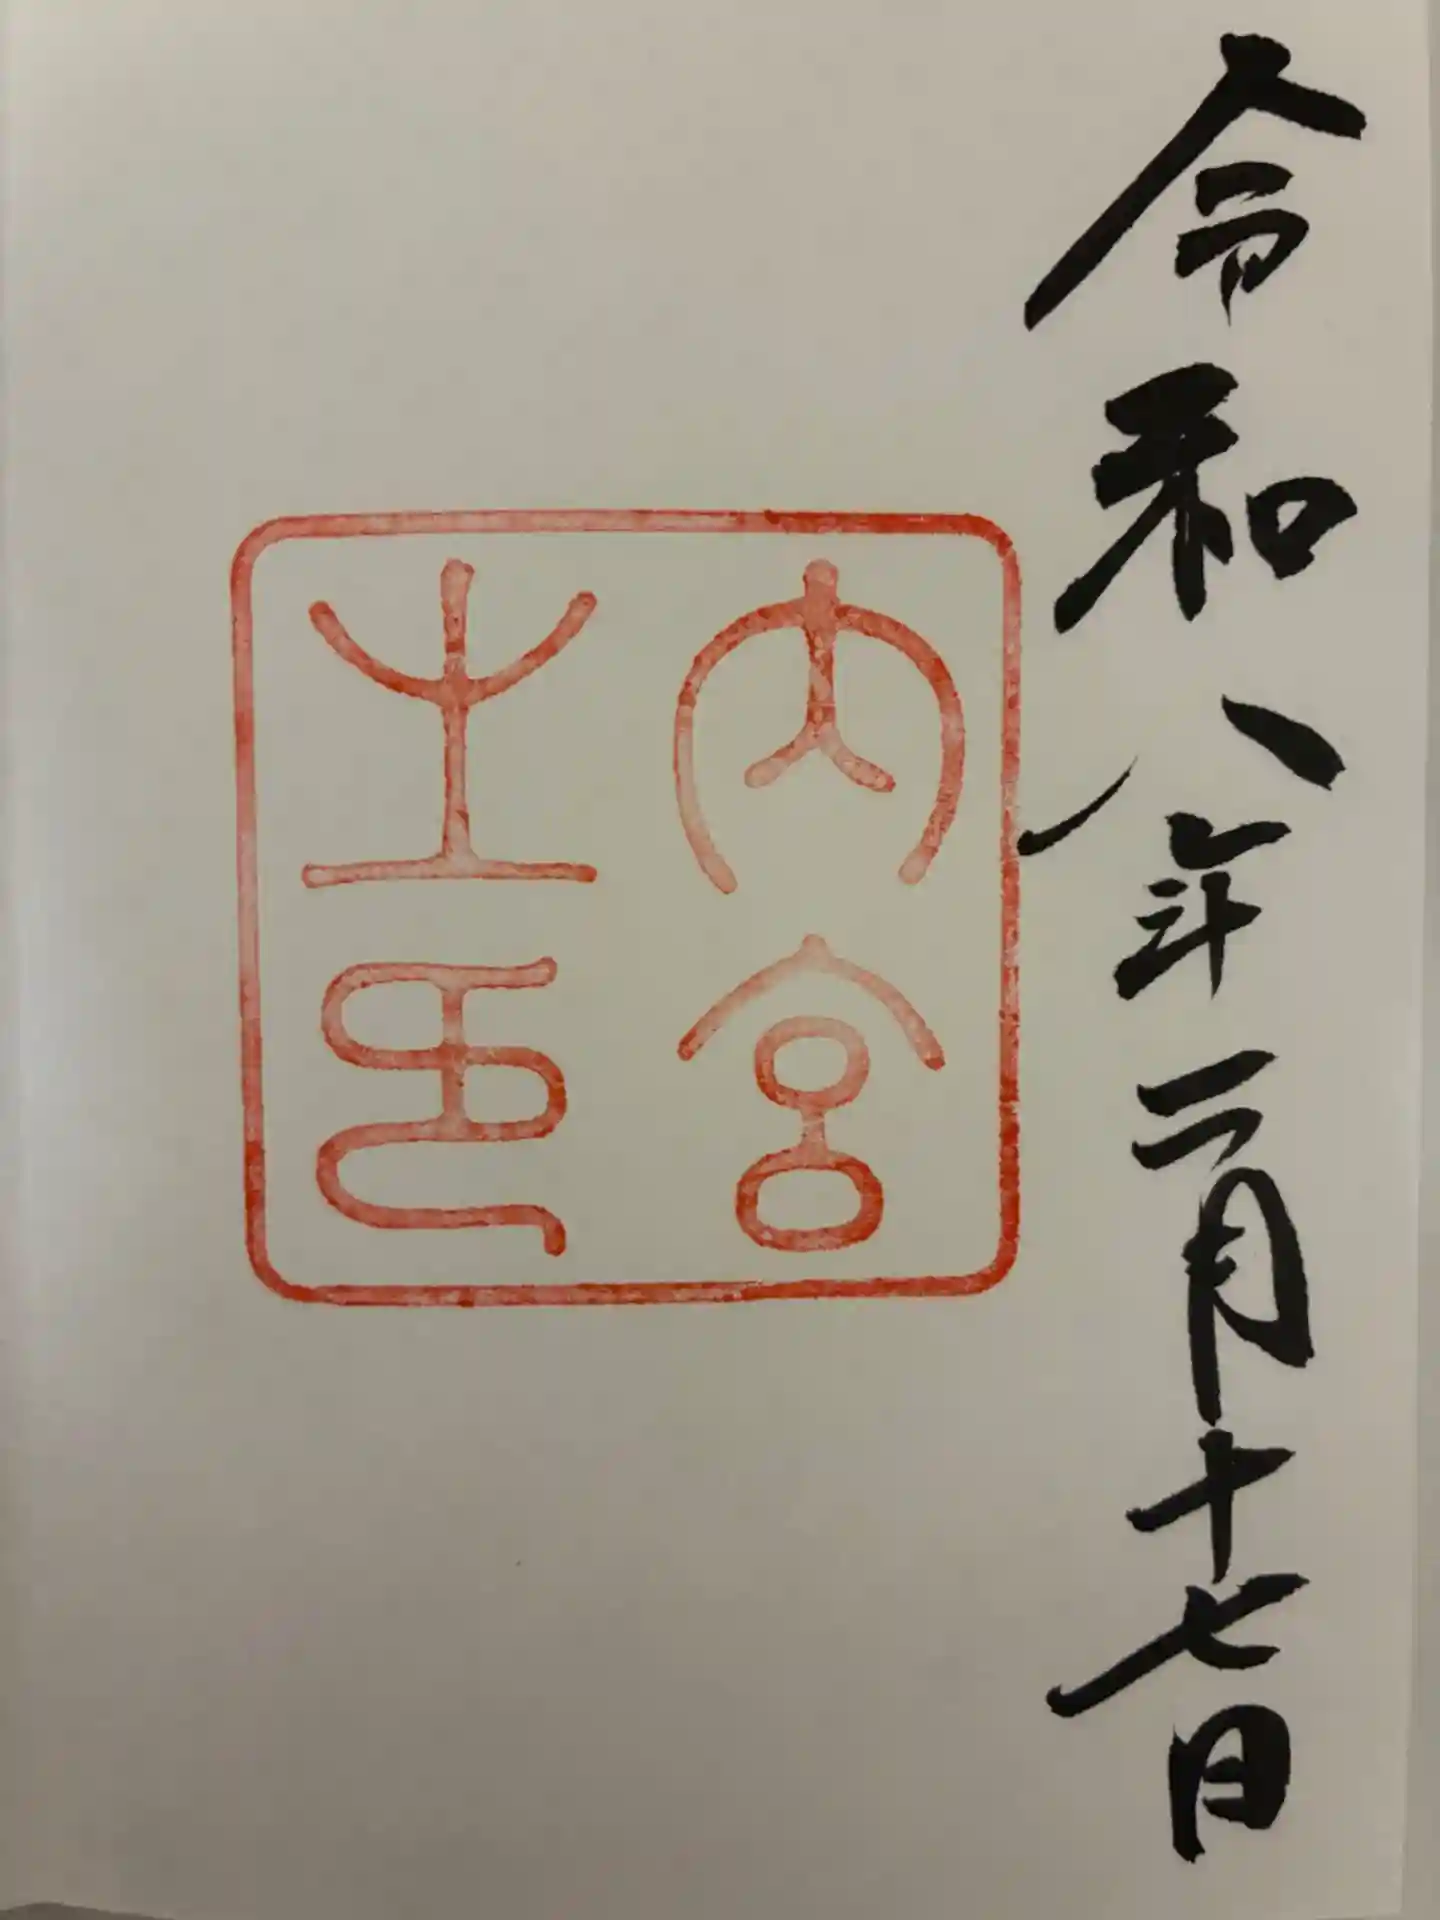 令和八年二月十七日
内宮
之印